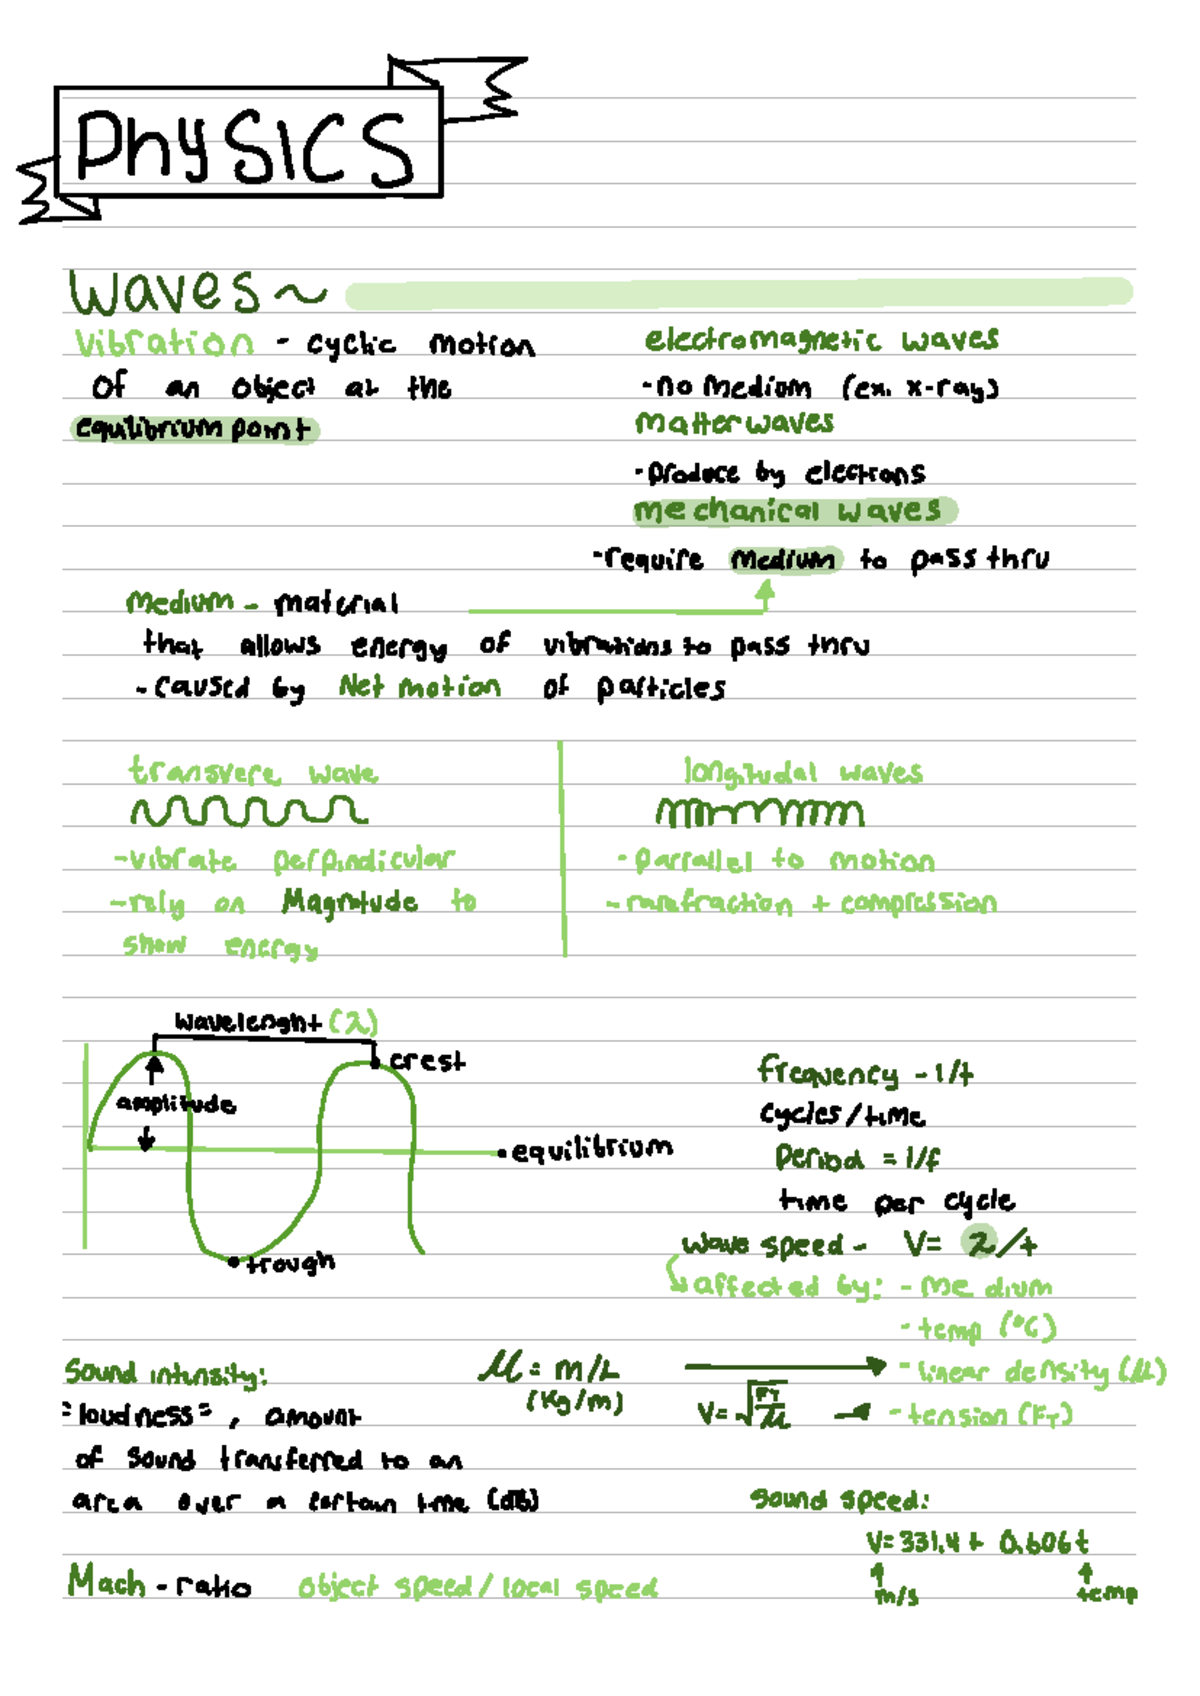 PhySICS
Waves ~
Vibration - cyclic motion
of an object at the
equilibrium point
electromagnetic waves
- no medium (ex. x-ray)
matter waves
- produce by electrons
mechanical waves
- require medium to pass thru
medium - material
that allows energy of vibrations to pass thru
- caused by Net motion of particles
transvere wave
- vibrate perpindicular
- rely on Magnitude to
show energy
longitudal waves
- parrallel to motion
- rarafraction + compression
wavelenght (λ)
crest
amplitude
equilibrium
trough
frequency - 1/t
cycles/time
Period = 1/f
time per cycle
wave speed - V= λ/t
affected by: - medium
- temp (°C)
- linear density (μ)
- tension (FT)
μ = m/L
(kg/m)
V= √FT/μ
Sound intensity:
"loudness", amount
of sound transferred to an
area over a certain time (dB)
Sound speed:
V= 331.4 + 0.606t
m/s
temp
Mach - ratio object speed / local speed